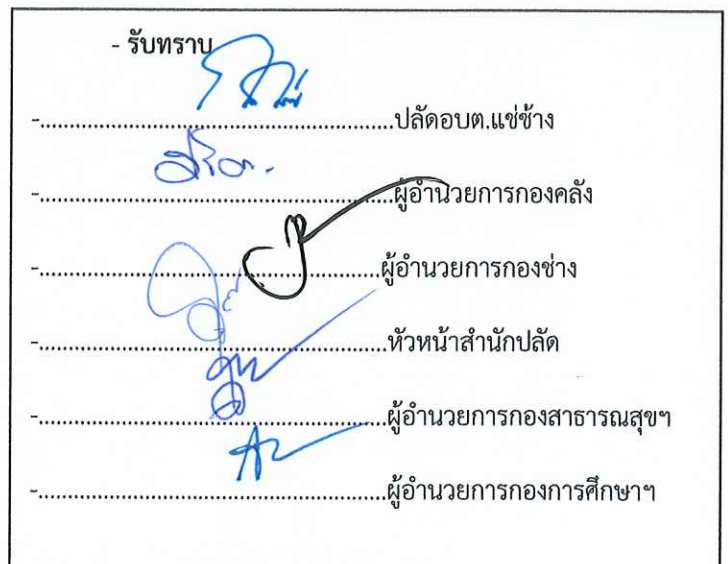 - รับทราบ
-......................................................ปลัดอบต.แช่ช้าง
-......................................................ผู้อำนวยการกองคลัง
-....................................................ผู้อำนวยการกองช่าง
-.....................................................หัวหน้าสำนักปลัด
-.....................................................ผู้อำนวยการกองสาธารณสุขฯ
-.....................................................ผู้อำนวยการกองการศึกษาฯ